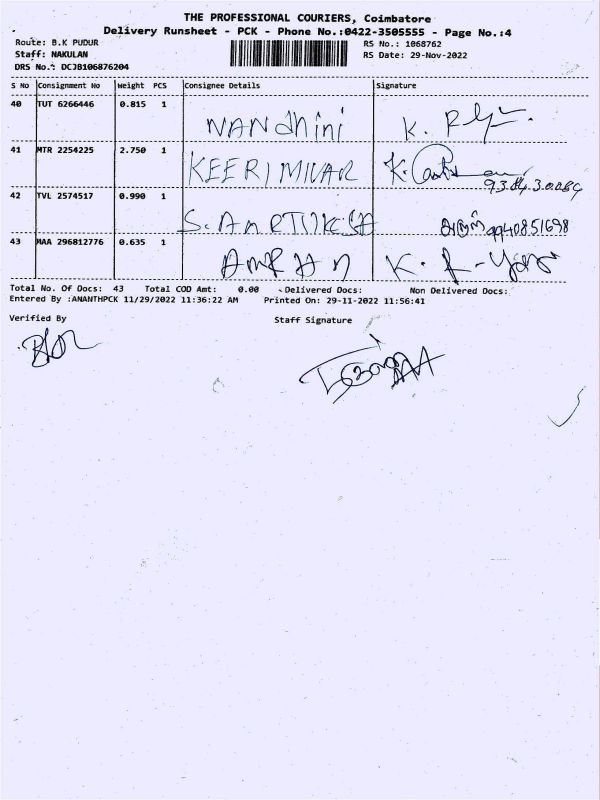 THE PROFESSIONAL COURIERS, Coimbatore
Delivery Runsheet - PCK - Phone No.:0422-3505555 - Page No.:4
Route: B.K PUDUR RS No.: 1068762
Staff: NAKULAN RS Date: 29-Nov-2022
DRS No.: DCJB106876204
S No Consignment No Weight PCS Consignee Details Signature
40 TUT 6266446 0.815 1
NANdhini K.
41 MTR 2254225 2.750 1
KEERIMIVAR K.
42 TVL 2574517 0.990 1
S. 9940851698
43 MAA 296812776 0.635 1
K.
Total No. Of Docs: 43 Total COD Amt: 0.00 Delivered Docs: Non Delivered Docs:
Entered By :ANANTHPCK 11/29/2022 11:36:22 AM Printed On: 29-11-2022 11:56:41
Verified By Staff Signature